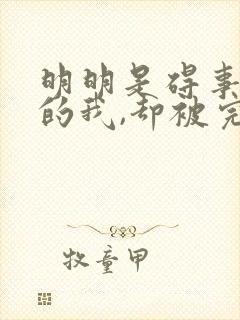 明明是碍事
的我,却被完
牧童甲